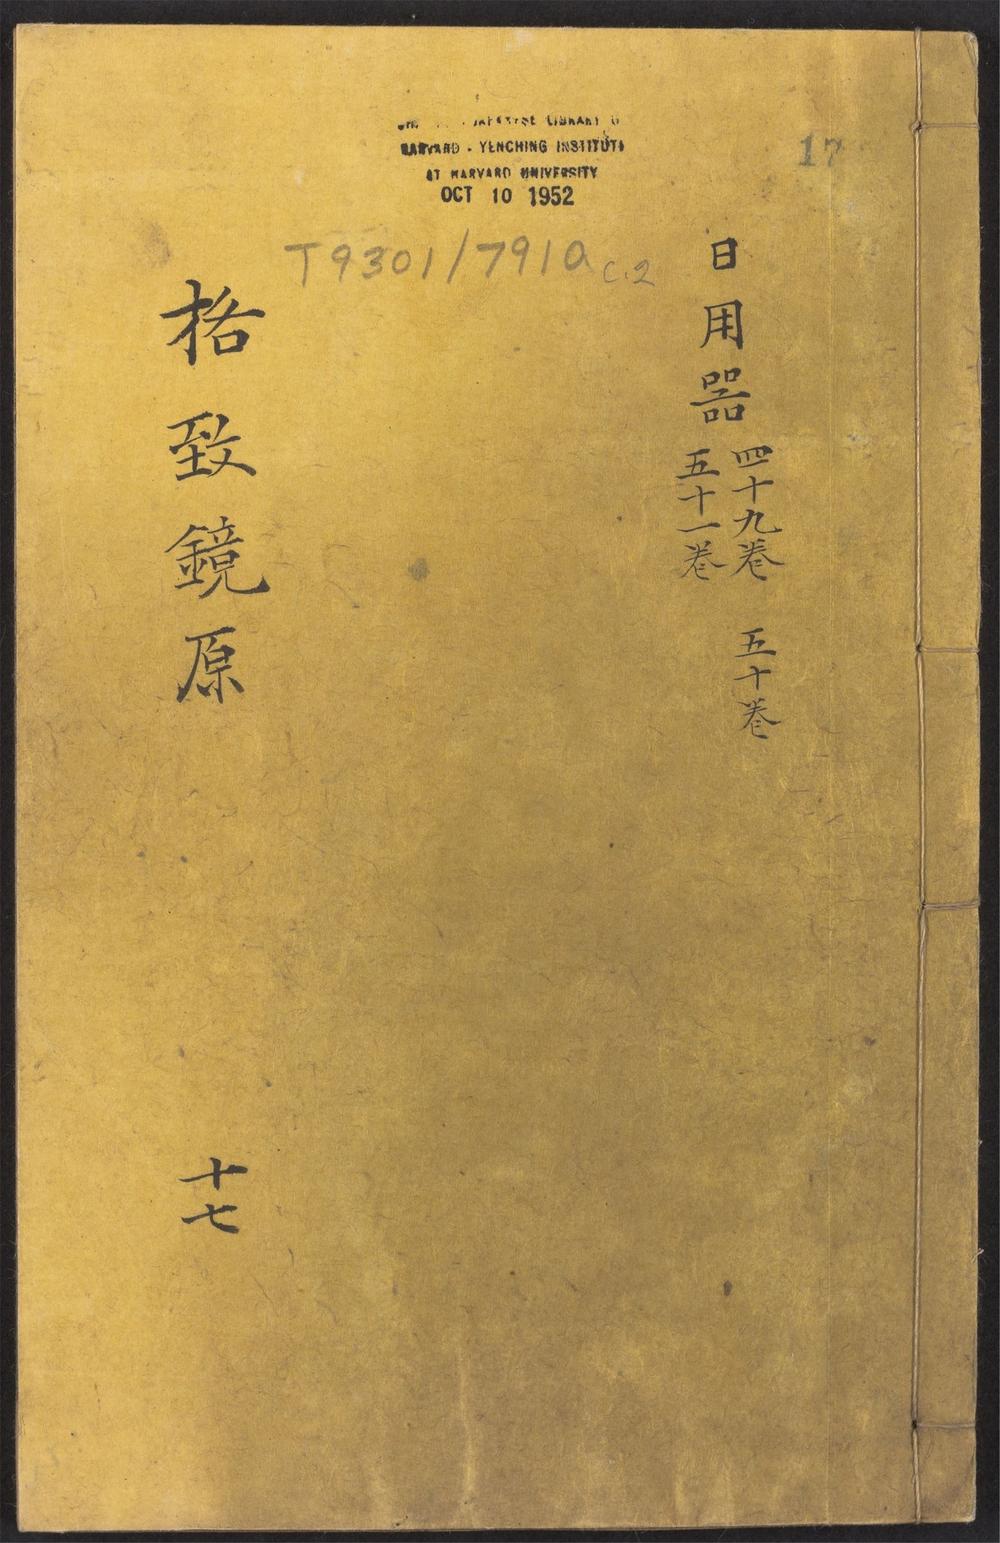 JAPANESE LIBRARY
HARVARD - YENCHING INSTITUTE
AT HARVARD UNIVERSITY
OCT 10 1952
17
T9301/7910 c.2
日用器
四十九卷 五十卷
五十一卷
格致鏡原
十七